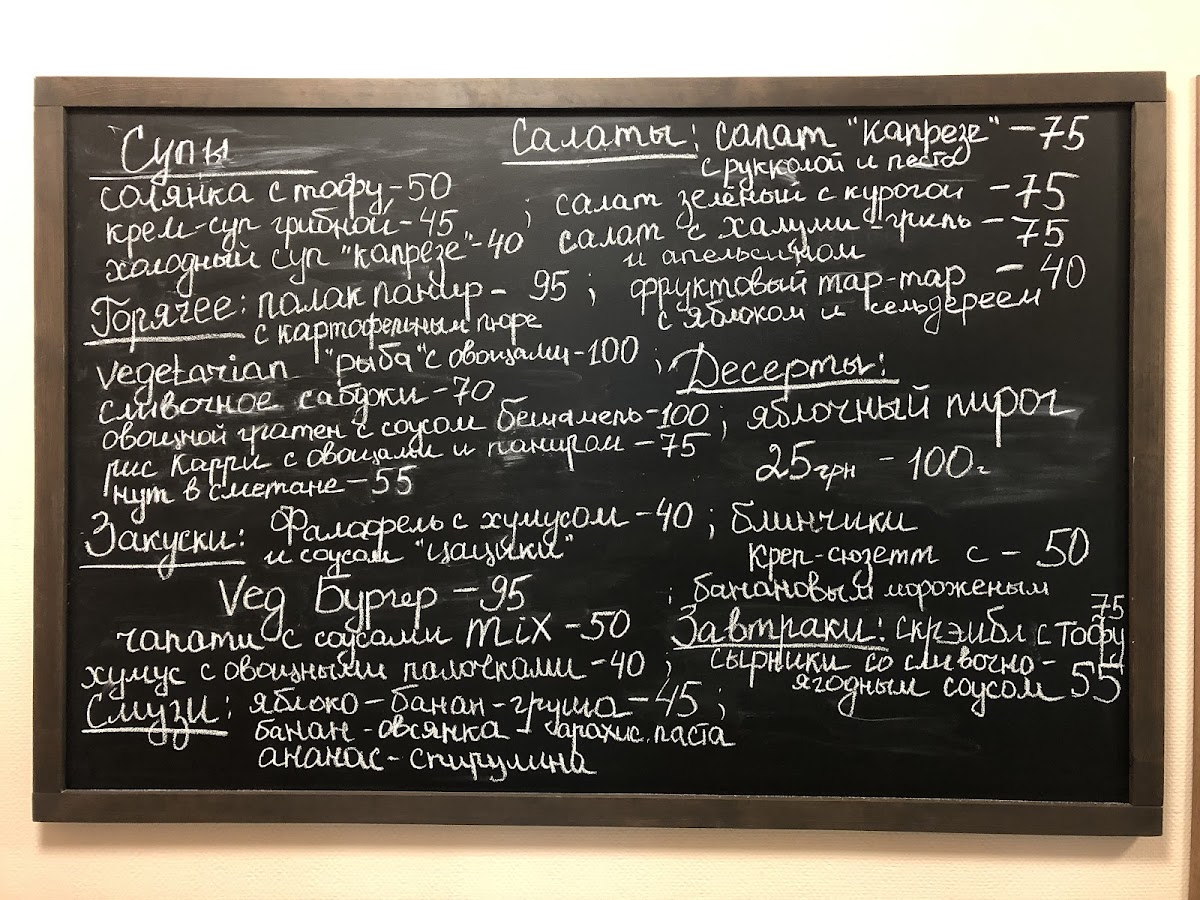 Супы
солянка с тофу - 50
крем-суп грибной - 45
холодный суп "капрезе" - 40
Горячее: палак панир - 95 ;
с картофельным пюре
vegetarian "рыба" с овощами - 100 ;
сливочное сабджи - 70
овощной гратен с соусом бешамель - 100 ;
рис карри с овощами и паниром - 75
нут в сметане - 55
Закуски: Фалафель с хумусом - 40 ;
и соусом "цацики"
Veg Бургер - 95
чапати с соусами mix - 50
хумус с овощными палочками - 40 ;
Смузи: яблоко - банан - груша - 45 ;
банан - овсянка - арахис. паста
ананас - спирулина
Салаты: салат "капрезе" - 75
с рукколой и песто
; салат зелёный с курагой - 75
салат с халуми - гриль - 75
и апельсином
фруктовый тар-тар - 40
с яблоком и сельдереем
Десерты:
яблочный пирог
25 грн - 100 г
блинчики
креп-сюзетт с - 50
; банановым мороженым
Завтраки: скрэмбл с тофу 75
сырники со сливочно -
ягодным соусом 55